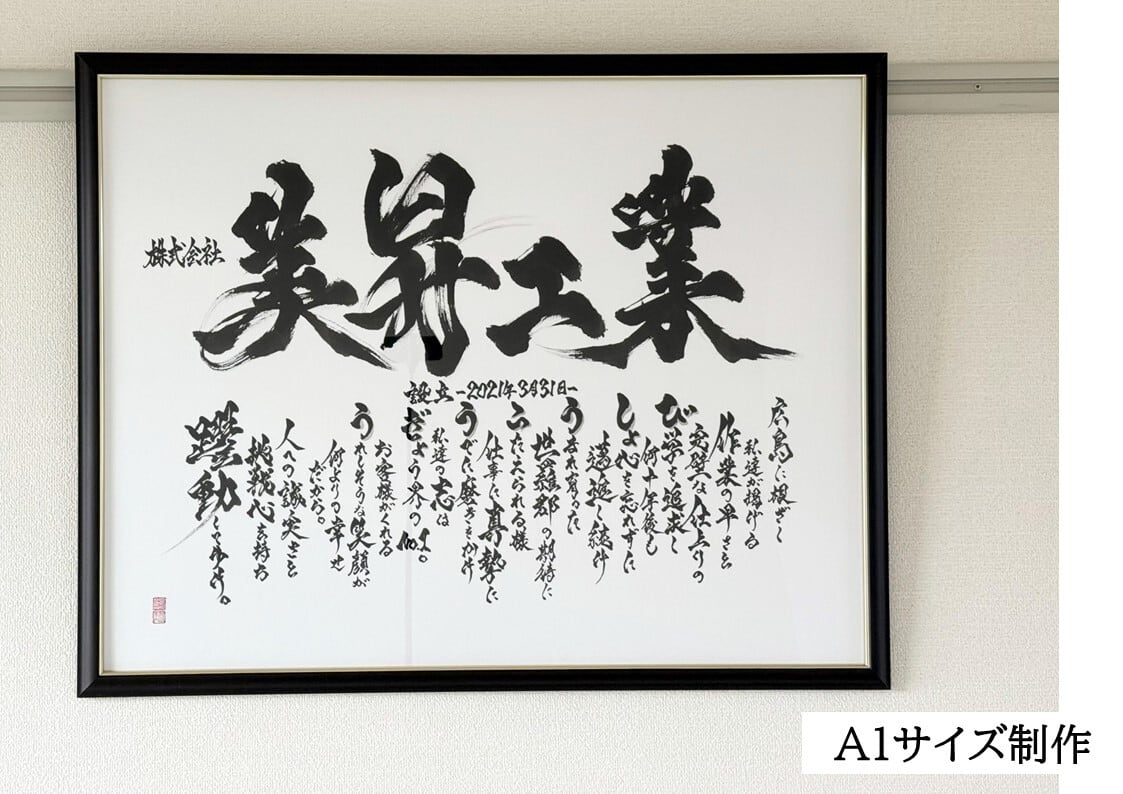 株式会社
美昇工業
設立-2021年3月31日-
広島に根ざし
私達が掲げる
作業の早さと
完璧な仕上りの
び学を追求し
何十年後も
しょ心を忘れずに
邁進し続け
うまれ育った
世羅郡の期待に
こたえられる様
仕事に真摯に
うでに磨きをかけ
私達の志は
ぎょう界のNo.1。
お客様がくれる
うれしそうな笑顔が
何よりの幸せ
だから。
人への誠実さと
挑戦心を持ち
躍動して歩む。
A1サイズ制作